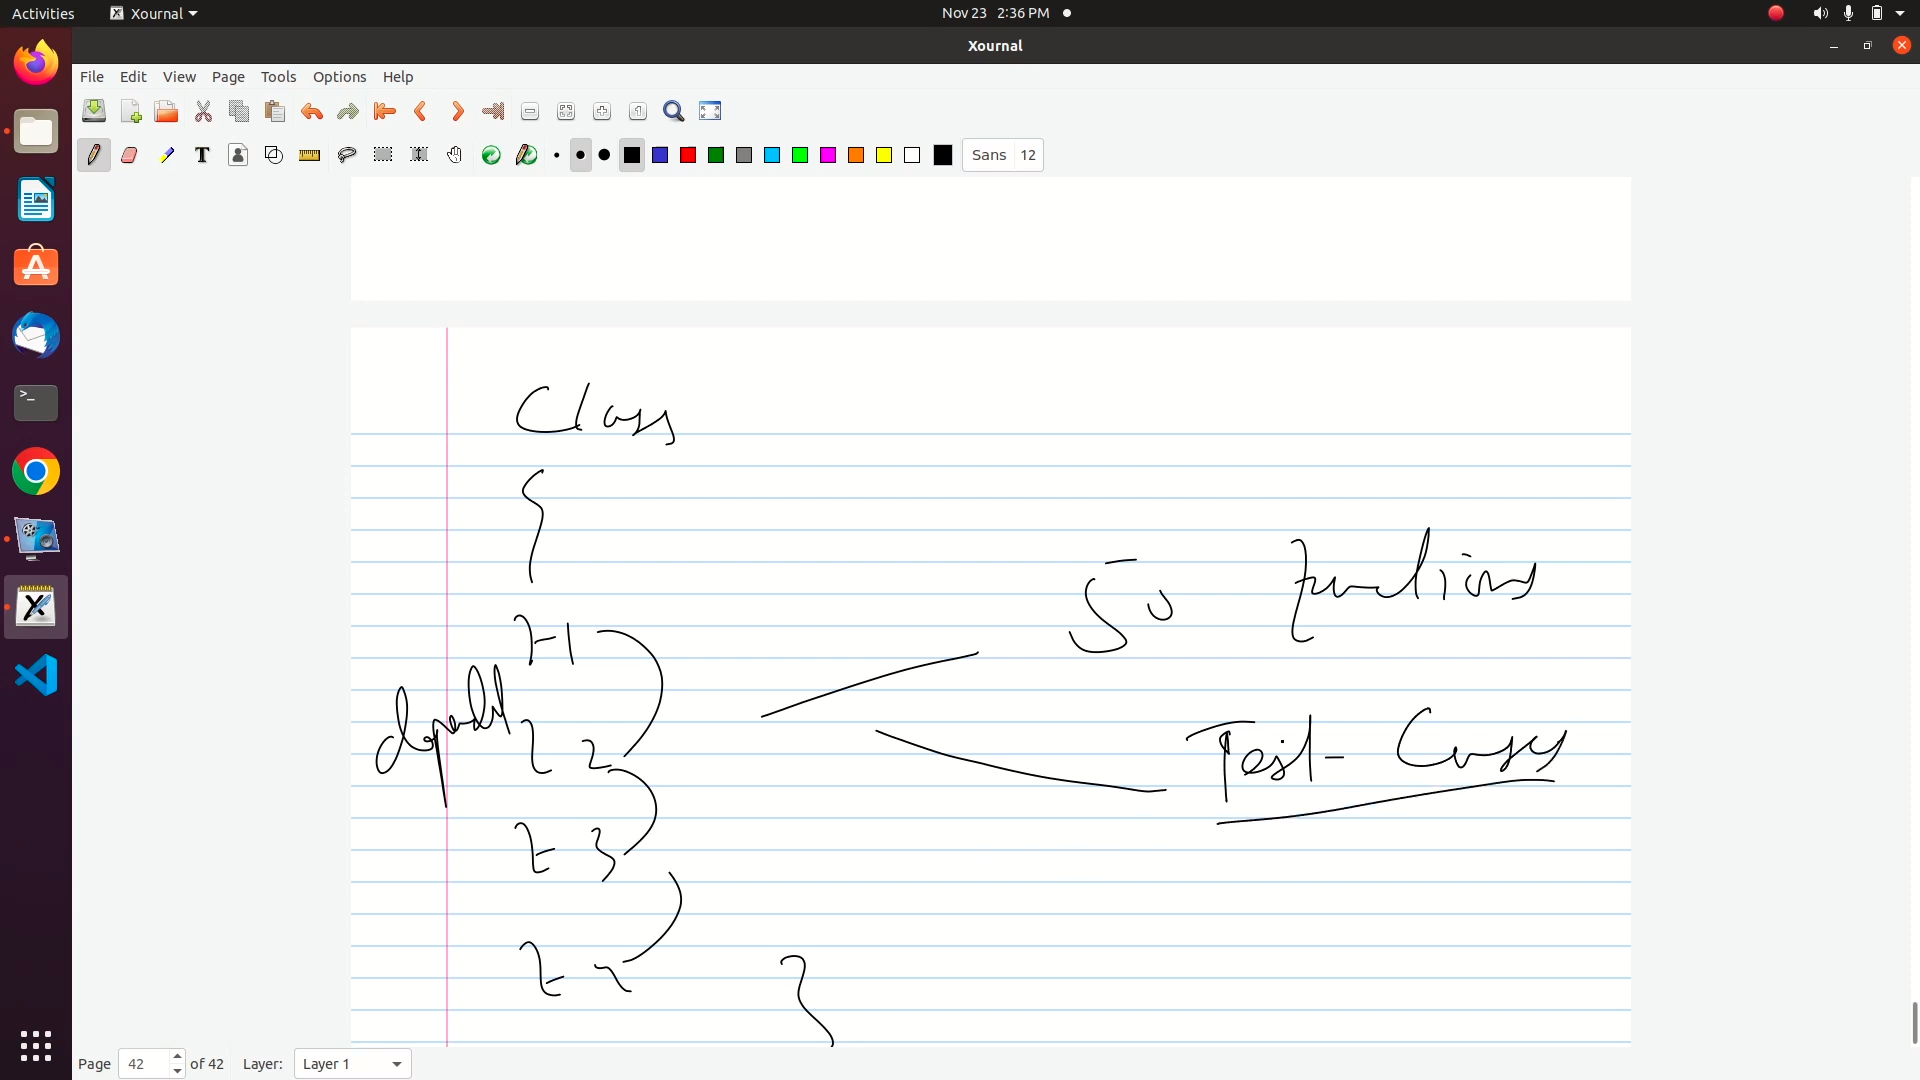 Activities Xournal Nov 23 2:36 PM
Xournal
File Edit View Page Tools Options Help
Sans 12
Class
{
50 functions
F-1
F 2
Test- Cases
F 3
F-n
}
Page 42 of 42 Layer: Layer 1